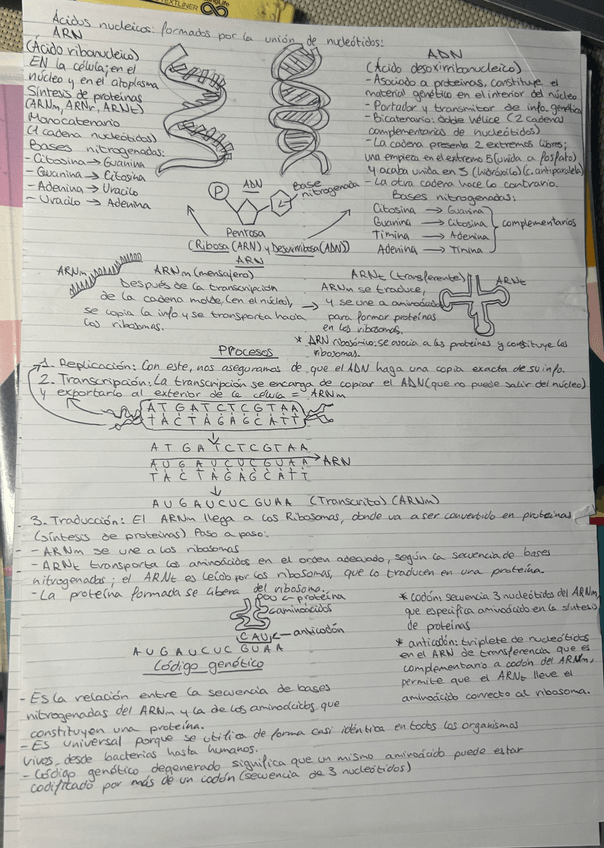 TEXTLINER
Ácidos nucleicos: formados por la unión de nucleótidos:
ARN
(Ácido ribonucleico)
EN la célula, en el
núcleo y en el citoplasma
Síntesis de proteínas
(ARNm, ARNr, ARNt)
Monocatenario
(1 cadena nucleótidos)
Bases nitrogenadas:
- Citosina → Guanina
- Guanina → Citosina
- Adenina → Uracilo
- Uracilo → Adenina
ADN
(Ácido desoxirribonucleico)
- Asociado a proteínas, constituye el
material genético en el interior del núcleo
- Portador y transmitor de info. genética
- Bicatenario: doble hélice (2 cadenas
complementarias de nucleótidos)
- La cadena presenta 2 extremos libres;
una empieza en el extremo 5 (unida a fosfato)
y acaba unida en 3 (hidróxilo) (c. antiparalela)
- La otra cadena hace lo contrario.
Bases nitrogenadas:
Citosina → Guanina
Guanina → Citosina
Timina → Adenina
Adenina → Timina
complementarios
P
ADN
Base
nitrogenada
Pentosa
(Ribosa (ARN) y Desoxirribosa (ADN))
ARN
ARNm
ARNm (mensajero)
Después de la transcripción
de la cadena molde, (en el núcleo),
se copia la info y se transporta hacia
los ribosomas.
ARNt (transferente)
ARNm se traduce,
→ y se une a aminoácidos
para formar proteínas
en los ribosomas.
ARNt
* ARN ribosómico: se asocia a las proteínas y constituye los
ribosomas.
Procesos
1. Replicación: Con este, nos aseguramos de que el ADN haga una copia exacta de su info.
2. Transcripción: La transcripción se encarga de copiar el ADN (que no puede salir del núcleo)
y exportarlo al exterior de la célula = ARNm
A T G A T C T C G T A A
T A C T A G A G C A T T
A T G A T C T C G T A A
A U G A U C U C G U A A → ARN
T A C T A G A G C A T T
A U G A U C U C G U A A (Transcrito) (ARNm)
3. Traducción: El ARNm llega a los Ribosomas, donde va a ser convertido en proteínas
(síntesis de proteínas) Paso a paso:
- ARNm se une a los ribosomas
- ARNt transporta los aminoácidos en el orden adecuado, según la secuencia de bases
nitrogenadas; el ARNt es leído por los ribosomas, que lo traducen en una proteína.
- La proteína formada se libera del ribosoma.
← proteína
aminoácidos
C A U ← anticodón
A U G A U C U C G U A A
* codón: secuencia 3 nucleótidos del ARNm,
que especifica aminoácido en la síntesis
de proteínas
* anticodón: triplete de nucleótidos
en el ARN de transferencia que es
complementario a codón del ARNm,
permite que el ARNt lleve el
aminoácido correcto al ribosoma.
Código genético
- Es la relación entre la secuencia de bases
nitrogenadas del ARNm y la de los aminoácidos que
constituyen una proteína.
- Es universal porque se utiliza de forma casi idéntica en todos los organismos
vivos, desde bacterias hasta humanos.
- Código genético degenerado significa que un mismo aminoácido puede estar
codificado por más de un codón (secuencia de 3 nucleótidos)